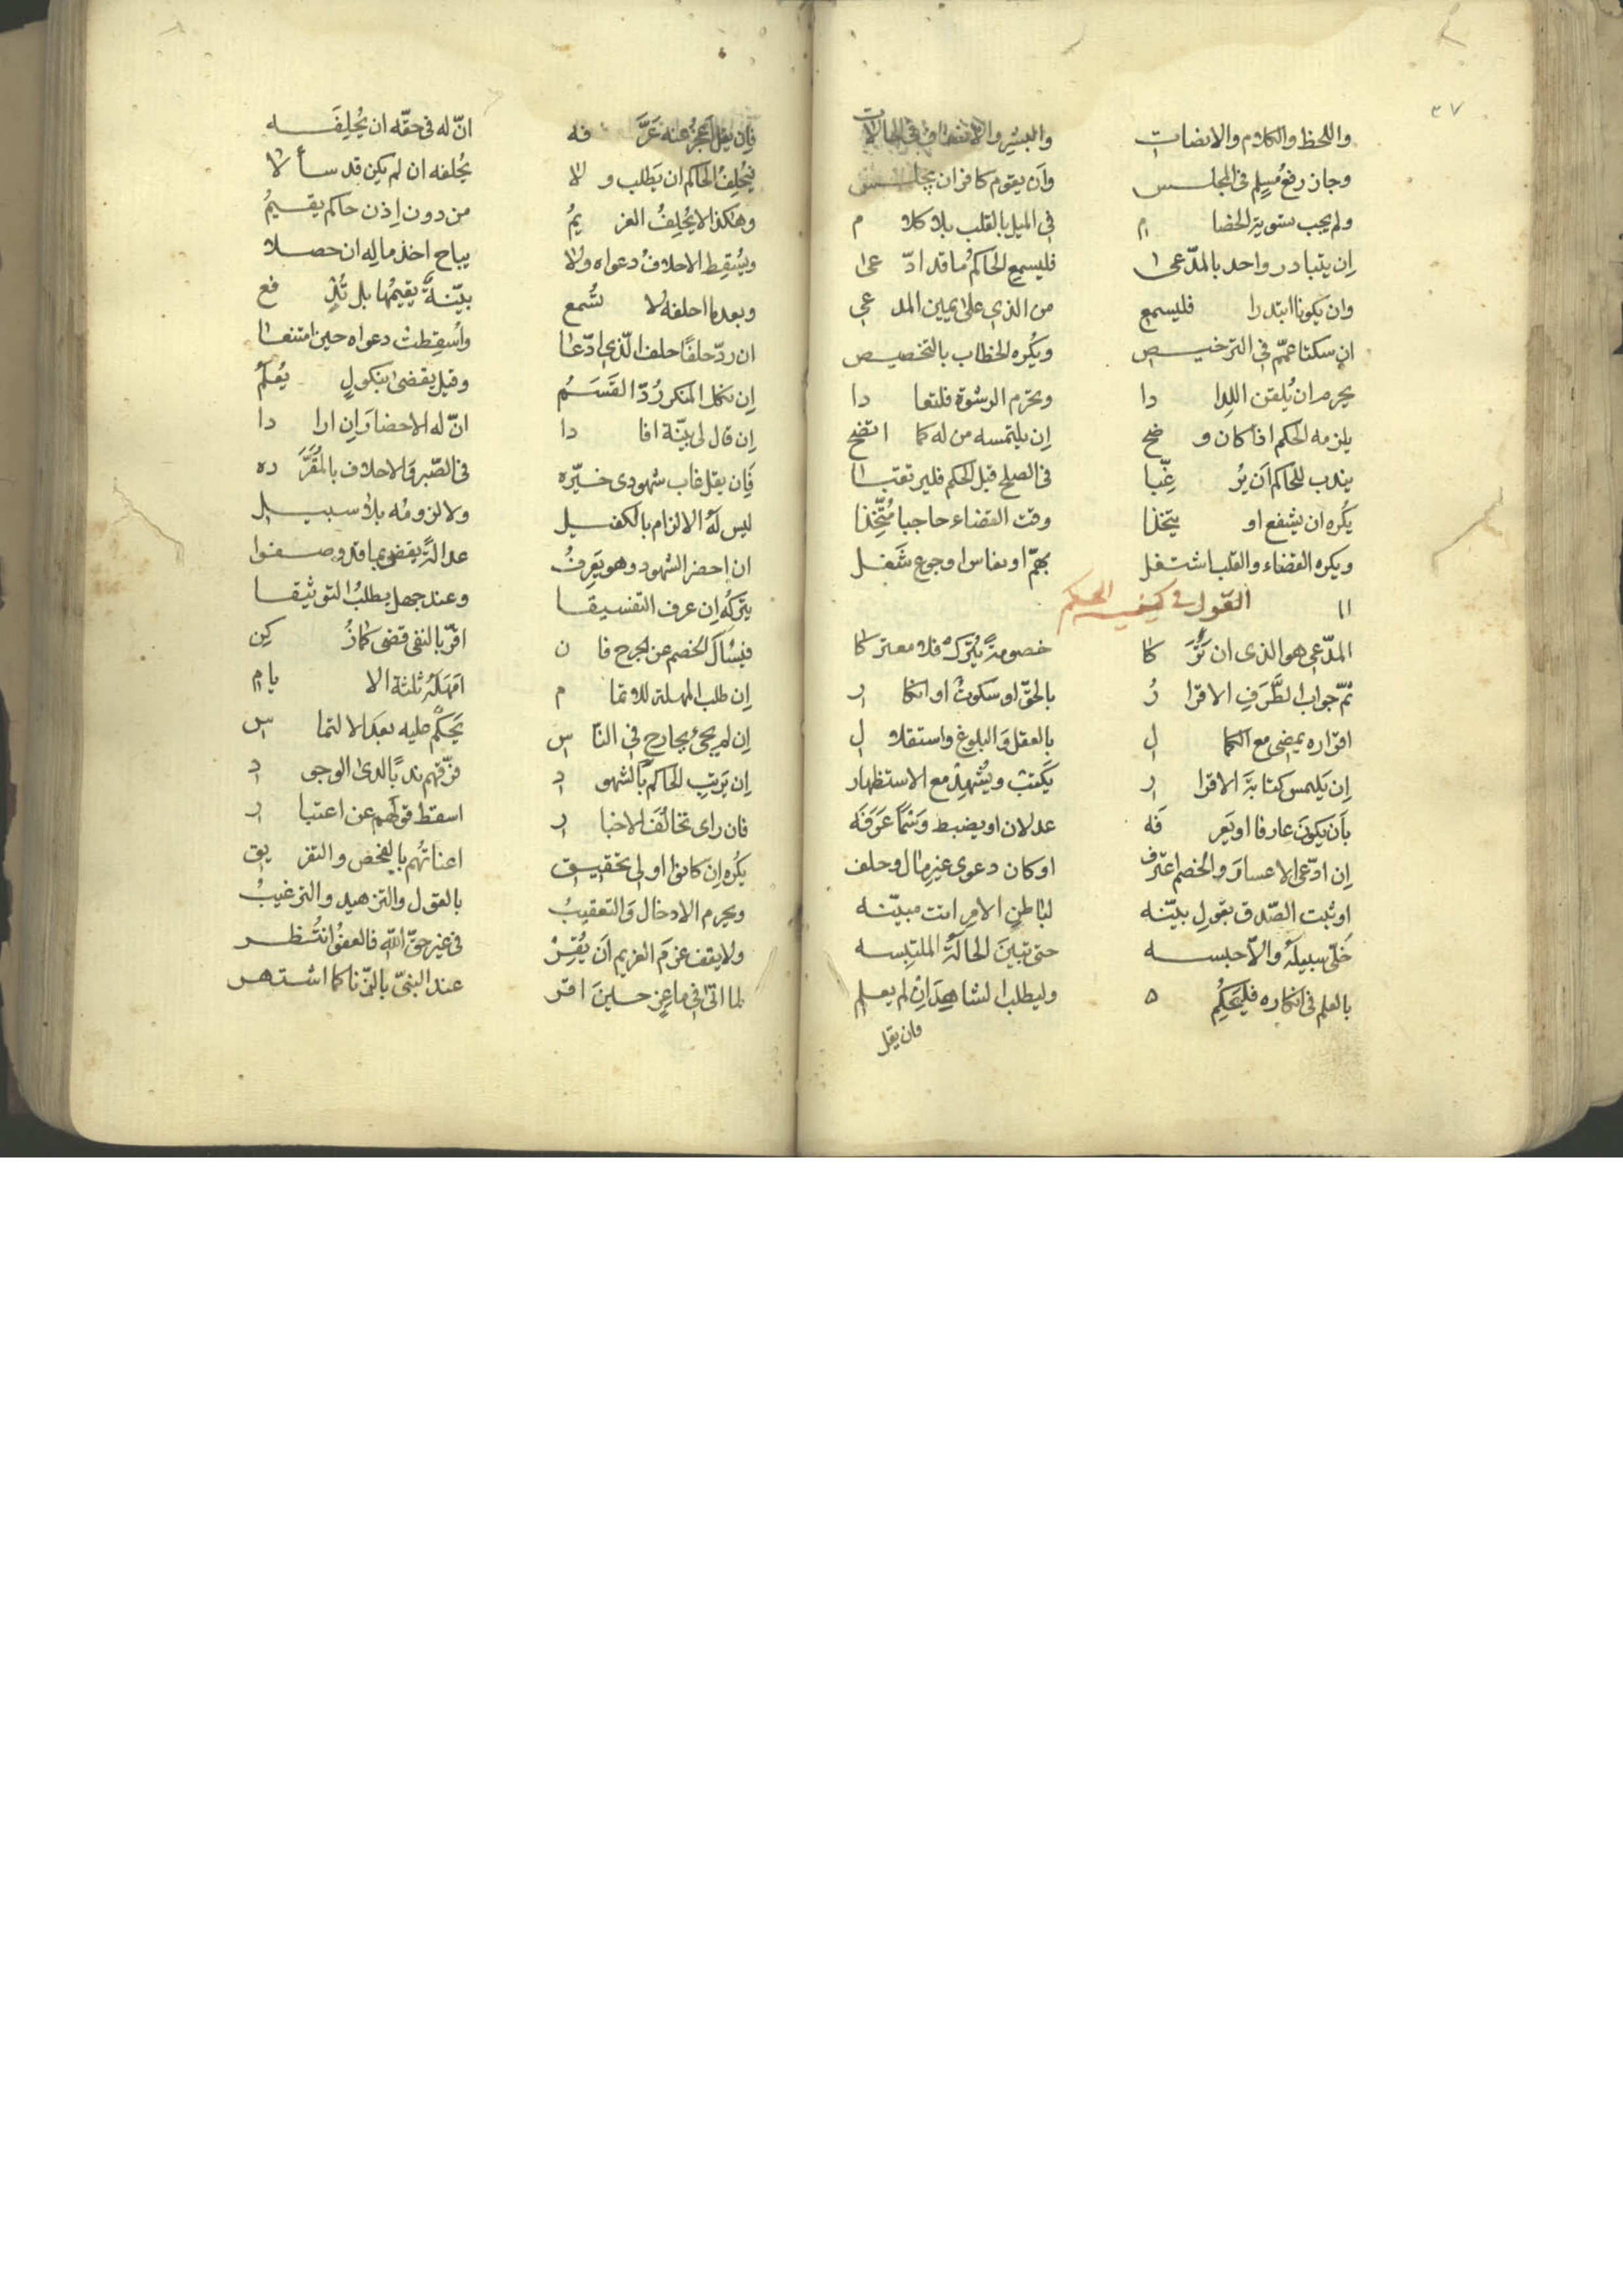 ٣٧
واللحظ والكلام والانصات والبشر والانصاف في الحالات
وجاز رفع مسلم في المجلس وان يقوم كافر ان يجلس
ولم يجب تسوية الخصام في الميل بالقلب بلا كلام
ان يتبادر واحد بالمدّعى فليسمع الحاكم ما قد ادّعى
وان يكونا ابتدرا فليسمع من الذي على يمين المدعي
ان سكتا عمّم في الترخيص ويكره الخطاب بالتخصيص
يحرم ان يُلقن اللدادا ويحرم الرشوة فلتعادا
يلزمه الحكم اذا كان وضح ان يلتمسه من له كما اتضح
يندب للحاكم أن يُرغِّبا في الصلح قبل الحكم فليرتقبا
يكره ان يشفع او يتخذا وقت القضاء حاجبا مُتّخذا
ويكره القضاء والقلب اشتغل بهمّ او نعاس او جوع شَغل
القول في كيفية الحكم
المدّعي هو الذي ان تَرَكا خصومةً يُترك فلا معتركا
ثمّ جواب الطَّرَفِ الاقرارُ بالحقّ او سكوتٌ او انكار
اقراره يمضى مع الكمال بالعقل والبلوغ واستقلال
ان يلتمس كتابة الاقرار يكتب ويُشهد مع الاستظهار
بأن يكون عارفا او يعرفَه عدلان او يضبط وسمًا عرفَه
ان ادّعى الاعسار والخصم اعترف او كان دعوى غير مال وحلف
او ثبت الصّدق بقول بيّنه لباطن الامر اتت مبيّنه
خلّى سبيله والاّ حبسه حتى تبين الحالة الملتبسه
بالعلم في انكاره فليحكم وليطلب الشاهد ان لم يعلم
وان يقل
فإن يقل أعجز عنه عَرَّفه انّ له في حقّه ان يُحلِفَه
فيُحلِفُ الحاكم ان يطلب ولا يُحلفه ان لم يكن قد سألا
وهكذا لا يُحلِفُ الغريمُ من دون اذن حاكم يقيمُ
ويُسقِط الاحلافُ دعواه ولا يباح اخذ ماله ان حصلا
وبعد ما احلفه لا تُسمع بيّنةٌ يقيمُها بل تُدفع
ان ردّ حلفًا حلف الّذي ادّعا واُسقِطت دعواه حين امتنعا
ان نكل المنكر رُدّ القَسَمُ وقيل يقضى بنكولٍ يُعلمُ
ان قال لي بيّنة افادا انّ له الاحضار ان ارادا
فان يقل غاب شهودي خيّره في الصّبر والاحلاف بالمُقرَّره
ليس له الالزام بالكفيل ولا لزومُه بلا سبيل
ان احضر الشهود وهو يعرفُ عدالةً يقضى بما قد وصفوا
يتركه ان عرف التفسيقا وعند جهل يطلبُ التوثيقا
فيسأل الخصم عن الجرح فان اقرّ بالنفي قضى كأن زُكِن
ان طلب المهلة للاتمام امهله ثلثة الايام
ان لم يجئ بجارح في النّاس يحكم عليه بعد الالتماس
ان يرتب الحاكم بالشهود فرّقهم ندبًا لدى الوجود
فان راى تخالُفَ الاخبار اسقط قولهم عن اعتبار
يكره ان كانوا اولى تحقيق اعناتُهم بالفحص والتفريق
ويحرم الادخال والتعقيبُ بالقول والتزهيد والترغيبُ
ولا يقف عزمَ الغريم أن يُقِرّ في غير حقّ الله فالعفوُ انتُظر
لما اتى في ماعز حين اقر عند النبيّ بالزّنا كما اشتهر